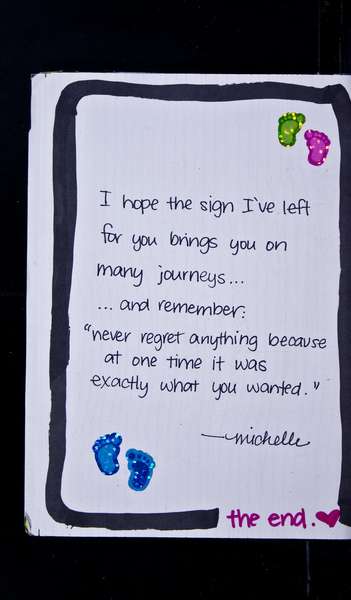 I hope the sign I've left
for you brings you on
many journeys...
... and remember:
"never regret anything because
at one time it was
exactly what you wanted."
—michelle
the end.